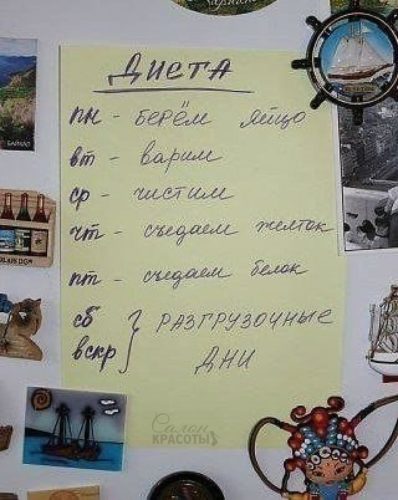 ДИЕТА
пн - берём яйцо
вт - варим
ср - чистим
чт - съедаем желток
пт - съедаем белок
сб } РАЗГРУЗОЧНЫЕ
вскр } ДНИ
Салон
КРАСОТЫ